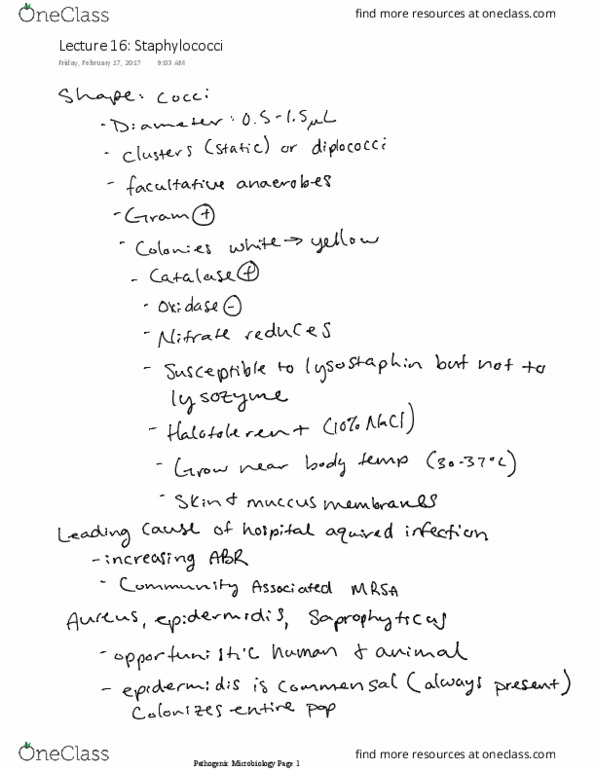 OneClass
find more resources at oneclass.com
Lecture 16: Staphylococci
Friday, February 17, 2017 9:03 AM
Shape: cocci
- Diameter: 0.5-1.5µL
- clusters (static) or diplococci
- facultative anaerobes
- Gram ⊕
- Colonies white → yellow
- Catalase ⊕
- Oxidase ⊖
- Nitrate reduces
- Susceptible to lysostaphin but not to
lysozyme
- Halotolerent (10% NaCl)
- Grow near body temp (30-37°C)
- Skin & muccus membranes
Leading cause of hospital aquired infection
- increasing ABR
- Community Associated MRSA
Aureus, epidermidis, Saprophyticus
- opportunistic human & animal
- epidermidis is commensal (always present)
Colonizes entire pop
OneClass
Pathogenic Microbiology Page 1
find more resources at oneclass.com